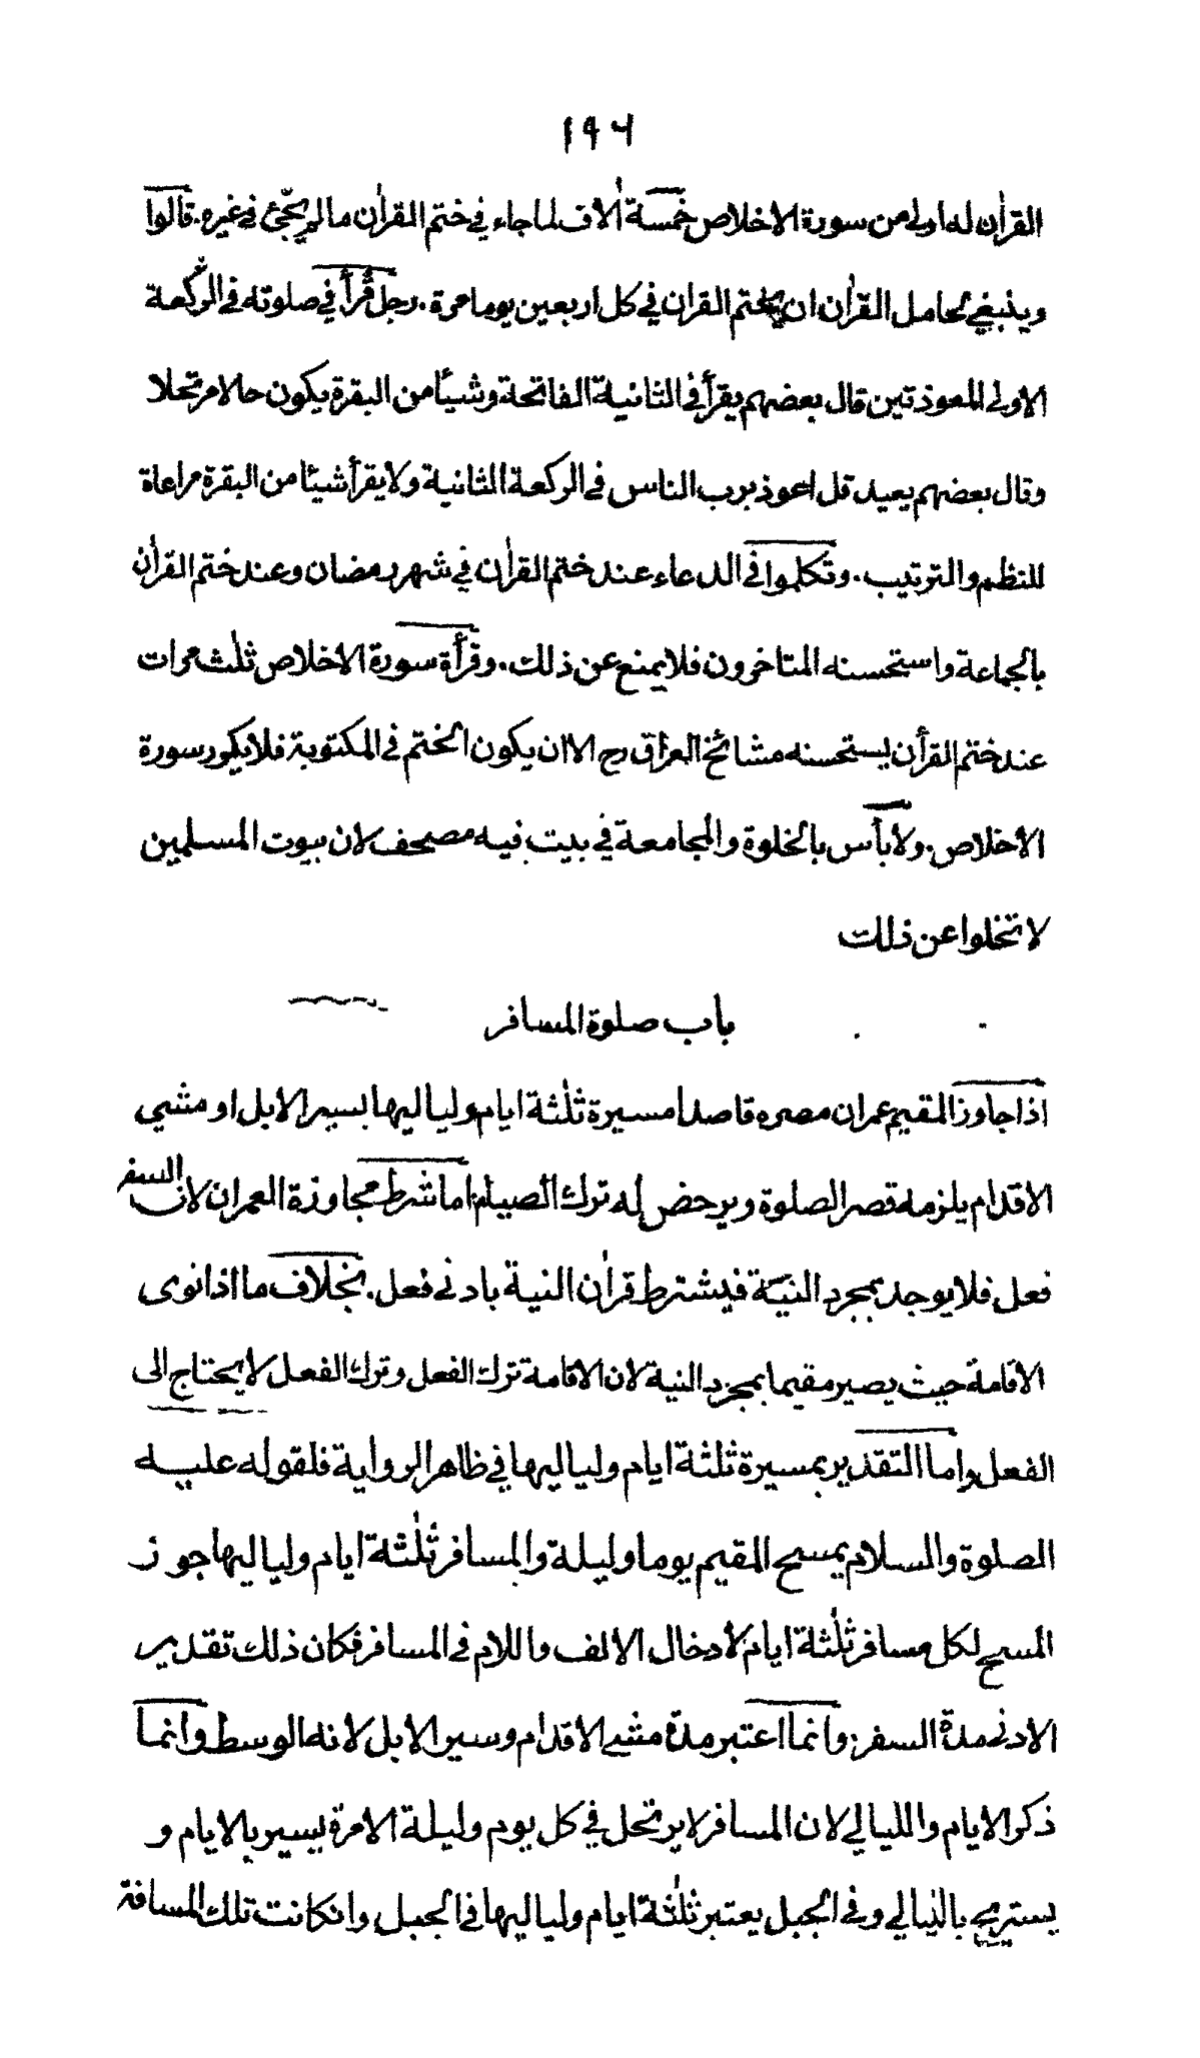 ١٩٦
القراٰن له اولى من سورة الاخلاص خمسة اٰلاف لما جاء في ختم القراٰن ما لم يجئ في غيره. قالوا
وينبغي لحامل القراٰن ان يختم القران في كل اربعين يوما مرة. رجل قرأ في صلوته في الركعة
الاولى المعوذتين قال بعضهم يقرأ في الثانية الفاتحة وشيئا من البقرة يكون حالا مرتحلا
وقال بعضهم يعيد قل اعوذ برب الناس في الركعة الثانية ولا يقرأ شيئا من البقرة مراعاة
للنظم والترتيب. وتكلموا في الدعاء عند ختم القراٰن في شهر رمضان وعند ختم القراٰن
بالجماعة واستحسنه المتاخرون فلا يمنع عن ذلك. وقرأة سورة الاخلاص ثلٰث مرات
عند ختم القرأن يستحسنه مشائخ العراق رح الا ان يكون الختم في المكتوبة فلا يكور سورة
الاخلاص. ولا بأس بالخلوة والمجامعة في بيت فيه مصحف لان بيوت المسلمين
لا تخلوا عن ذلك
باب صلوة المسافر
اذا جاوز المقيم عمران مصره قاصدا مسيرة ثلٰثة ايام ولياليها بسير الابل او مشي
الاقدام يلزمه قصر الصلوة ويرخص له ترك الصيام اما شرط مجاوزة العمران لان السفر
فعل فلا يوجد بمجرد النية فيشترط قراٰن النية بادنى فعل. بخلاف ما اذا نوى
الاقامة حيث يصير مقيما بمجرد النية لان الاقامة ترك الفعل وترك الفعل لا يحتاج الى
الفعل واما التقدير بمسيرة ثلثة ايام ولياليها في ظاهر الرواية فلقوله عليه
الصلوة والسلام يمسح المقيم يوما وليلة والمسافر ثلٰثة ايام ولياليها جوز
المسح لكل مسافر ثلٰثة ايام لأدخال الالف واللام في المسافر فكان ذلك تقدير
الادنى مدة السفر: وانما اعتبر مدة مشى الاقدام وسير الابل لانه الوسط وانما
ذكر الايام والليالي لان المسافر لا يرتحل في كل يوم وليلة الا مرة يسير بالايام و
يستريح بالليالي وفي الجبل يعتبر ثلٰثة ايام ولياليها في الجبل وانكانت تلك المسافة